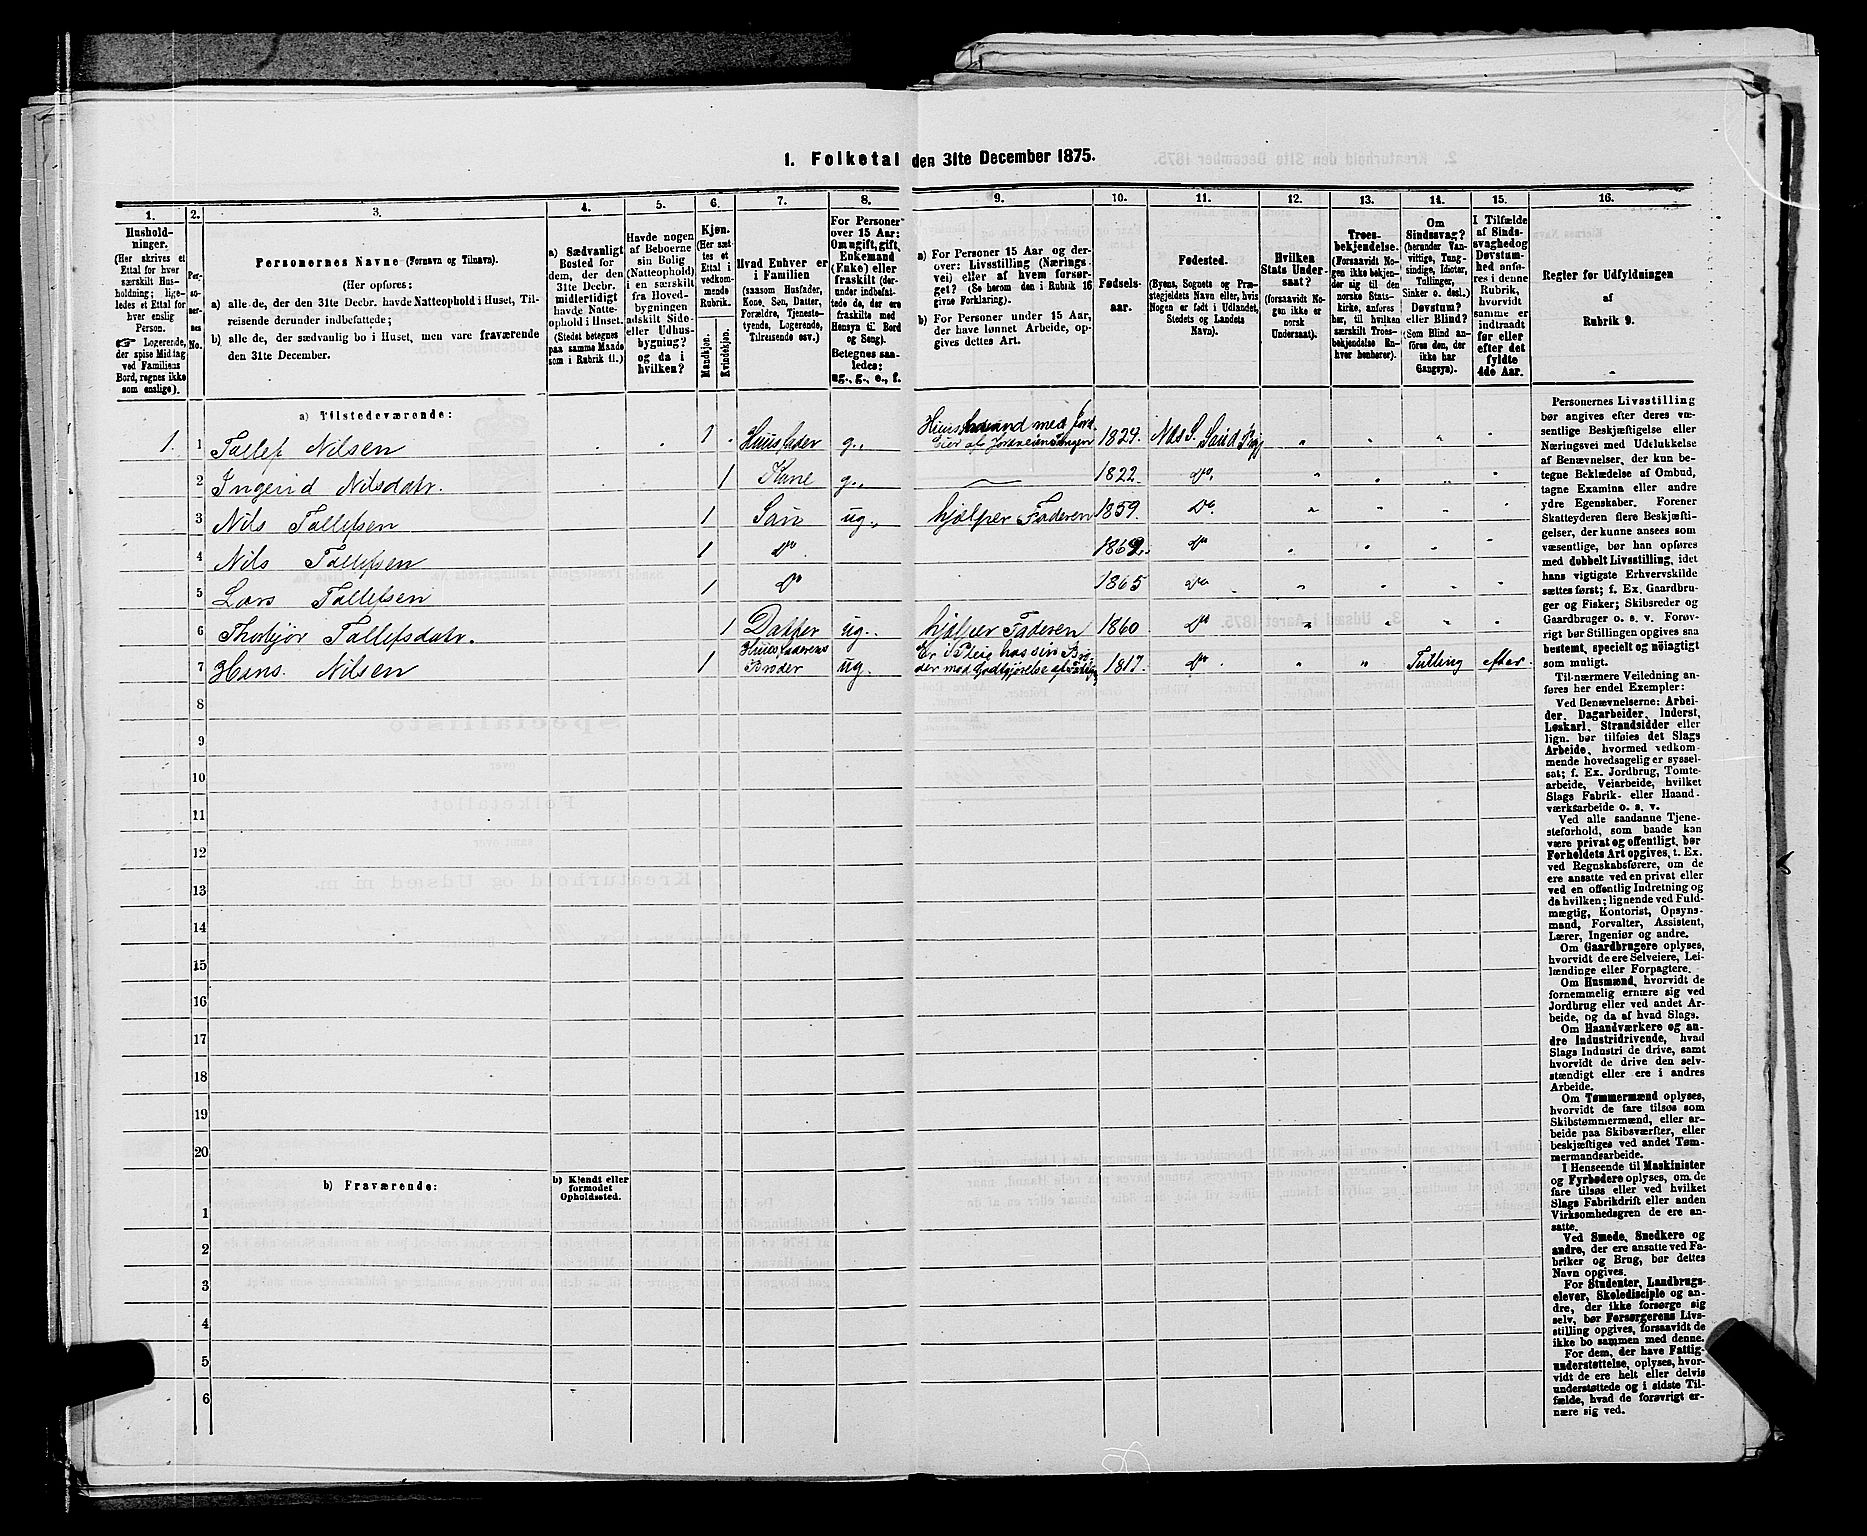 1. Folketal den 31te December 1875.
1.
Husholdninger.
(Her skrives et
Ettal for hver
særskilt Husholdning;
ligeledes
et Ettal for
hver enslig
Person.
☞ Logerende,
der spise Middag
ved Familiens
Bord, regnes ikke
som enslige).
2.
Personernes
No.
3.
Personernes Navne (Fornavn og Tilnavn).
(Her opføres:
a) alle de, der den 31te Decbr. havde Natteophold i Huset, Tilreisende derunder indbefattede;
b) alle de, der sædvanlig bo i Huset, men vare fraværende
den 31te December.
4.
a) Sædvanligt
Bosted for
dem, der den
31te Decbr.
midlertidigt
havde Natteophold
i Huset.
(Stedet betegnes
paa samme Maade
som i Rubrik 11.)
5.
Havde nogen
af Beboerne
sin Bolig
(Natteophold)
i en særskilt
fra Hovedbygningen
adskilt Side-
eller Udhusbygning?
og da i
hvilken?
6.
Kjøn.
(Her sættes
et
Ettal i
vedkommende
Rubrik.
Mandkjøn.
Kvindekjøn.
7.
Hvad Enhver er
i Familien
(saasom Husfader,
Kone, Søn, Datter,
Forældre, Tjenestetyende,
Logerende,
Tilreisende osv.)
8.
For Personer
over 15 Aar:
Om ugift, gift,
Enkemand
(Enke) eller
fraskilt (derunder
indbefattede
de, der ere
fraskilte med
Hensyn til Bord
og Seng).
Betegnes saaledes:
ug., g., e., f.
9.
a) For Personer 15 Aar og derover:
Livsstilling (Næringsvei)
eller af hvem forsørget?
(Se herom den i Rubrik 16
givne Forklaring).
b) For Personer under 15 Aar,
der have lønnet Arbeide, opgives
dettes Art.
10.
Fødselsaar.
11.
Fødested.
(Byens, Sognets og Præstegjeldets
Navn eller, hvis
Nogen er født i Udlandet,
Stedets og Landets
Navn).
12.
Hvilken
Stats Undersaat?
(forsaavidt Nogen
ikke er
norsk
Undersaat).
13.
Troesbekjendelse.
(Forsaavidt Nogen
ikke bekjender
sig til den
norske Statskirke,
anføres
her, til hvilken
særskilt Troesbekjendelse
Enhver
henhører).
14.
Om
Sindssvag?
(herunder Vanvittige,
Tungsindige,
Idioter,
Tullinger,
Sinker o. desl.)
Døvstum?
eller Blind?
(Som Blind anføres
den, der
ikke har
Gangsyn).
15.
I Tilfælde
af Sindssvaghed
og
Døvstumhed
anføres
i denne
Rubrik,
hvorvidt
samme er
indtraadt
før eller
efter det
fyldte
4de Aar.
16.
Regler for Udfyldningen
af
Rubrik 9.
a) Tilstedeværende:
1. 1 Tallef Nilsen 1 Huusfader g. Huusmand med Jord 1829. Næs S. Saud Prgj
2 Ingerid Nilsdatr. 1 Kone g. 1822. Do.
3 Nils Tallefsen 1 Søn ug. hjælper Faderen 1859. Do.
4 Nils Tallefsen 1 Do. Do
5 Lars Tallefsen 1 Do 1865 Do
6 Thorbjør Tallefsdatr. 1 Datter ug. hjælper Faderen 1860 Do
7 Hans Nilsen 1 Huusfaderens Broder ug. Er i Pleie hos sin Broder med Godtgjørelse af 1817. Do Tulling efter
8
9
10
11
12
13
14
15
16
17
18
19
20
b) Fraværende:
b) Kjendt eller
formodet
Opholdssted.
1
2
3
4
5
6
Personernes Livsstilling
bør angives efter deres væsentlige
Beskjæftigelse eller
Næringsvei med Udelukkelse
af Benævnelser, der kun betegne
Beklædelse af Ombud,
tagne Examina eller andre
ydre Egenskaber. Forener
Skatteyderen flere Beskjæftigelser,
der kunne ansees som
væsentlige, bør han opføres
med dobbelt Livsstilling, idet
hans vigtigste Erhvervskilde
sættes først; f. Ex. Gaardbruger
og Fisker; Skibsreder og
Gaardbruger o. s. v. Forøvrigt
bør Stillingen opgives saa
bestemt, specielt og nøiagtigt
som muligt.
Til nærmere Veiledning anføres
her endel Exempler:
Ved Benævnelserne: Arbeider,
Dagarbeider, Inderst,
Løskarl, Strandsidder eller
lign. bør tilføies det Slags
Arbeide, hvormed vedkommende
hovedsagelig er sysselsat;
f. Ex. Jordbrug, Tomtearbeide,
Veiarbeide, hvilket
Slags Fabrik- eller Haandværksarbeide
o. s. v.
Ved alle saadanne Tjenesteforhold,
som baade kan
være privat og offentligt, bør
Forholdets Art opgives, t. Ex.
ved Regnskabsførere, om de
ere ansatte ved en privat eller
ved en offentlig Indretning og
da hvilken; lignende ved Fuldmægtig,
Kontorist, Opsynsmand,
Forvalter, Assistent,
Lærer, Ingeniør og andre.
Om Gaardbrugere oplyses,
hvorvidt de ere Selveiere, Leilændinge
eller Forpagtere.
Om Husmænd, hvorvidt de
fornemmelig ernære sig ved
Jordbrug eller ved andet Arbeide,
og da af hvad Slags.
Om Haandværkere og andre
Industridrivende, hvad
Slags Industri de drive, samt
hvorvidt de drive den selvstændigt
eller ere i andres
Arbeide.
Om Tømmermænd oplyses,
hvorvidt de fare tilsøs som
Skibstømmermænd, eller arbeide
paa Skibsværfter, eller
beskjæftiges ved andet Tømmermandsarbeide.
I Henseende til Maskinister
og Fyrbødere oplyses, om de
fare tilsøs eller ved hvilket
Slags Fabrikdrift eller anden
Virksomhedsgren de ere ansatte.
Ved Smede, Snedkere og
andre, der ere ansatte ved Fabriker
og Brug, bør dettes
Navn opgives.
For Studenter, Landbrugselever,
Skoledisciple og andre,
der ikke forsørge sig
selv, bør Forsørgerens Livsstilling
opgives, forsaavidt de
ikke bo sammen med denne.
For dem, der have Fattigunderstøttelse,
oplyses, hvorvidt
de ere helt eller delvis
understøttede og i sidste Tilfælde,
hvad de forøvrigt ernære
sig ved.